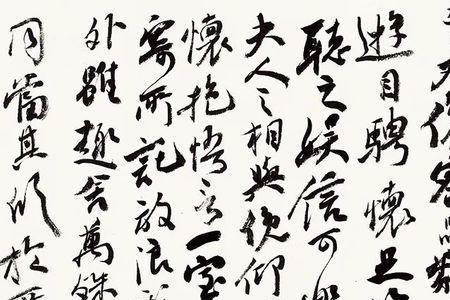 大俯察品類
遊目騁懷足
聽之娛信可樂
夫人之相與俯仰
懷抱悟言一室
寄所託放浪
外雖趣舍萬殊
同當其欣於所